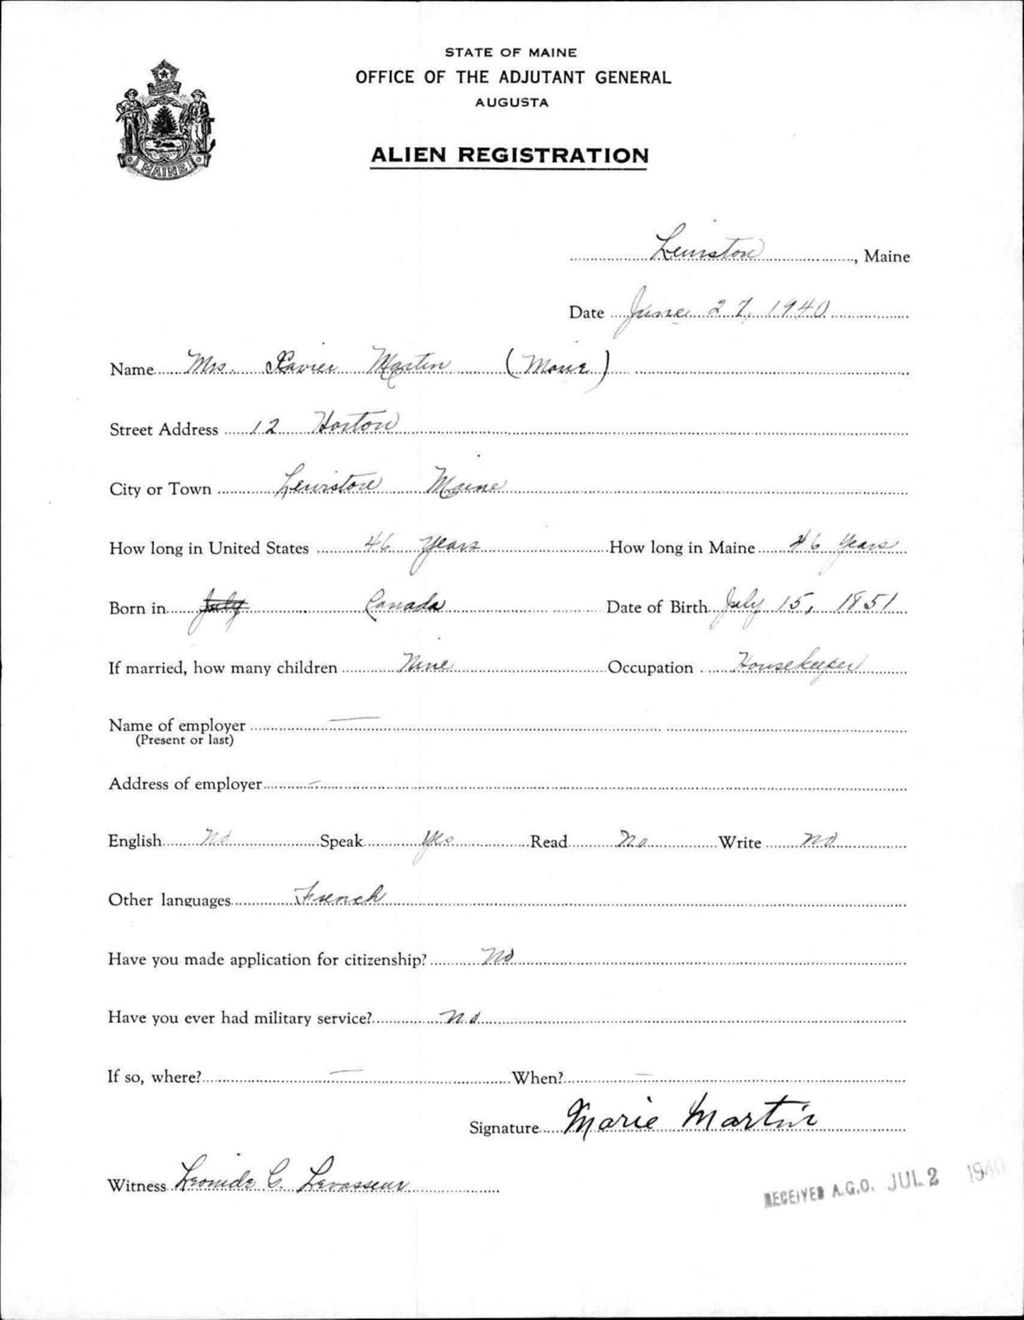 STATE OF MAINE
OFFICE OF THE ADJUTANT GENERAL
AUGUSTA
ALIEN REGISTRATION
MAINE
Lewiston, Maine
Date June 27, 1940
Name Mrs. Xavier Martin (Marie)
Street Address 12 Horton
City or Town Lewiston Maine
How long in United States 46 Years How long in Maine 46 Years
Born in July Canada Date of Birth July 15, 1851
If married, how many children Nine Occupation Housekeeper
Name of employer
(Present or last)
Address of employer
English No Speak Yes Read No Write No
Other languages French
Have you made application for citizenship? No
Have you ever had military service? No
If so, where? When?
Signature Marie Martin
Witness Leonide C. Levasseur
RECEIVED A.G.O. JUL 2 1940